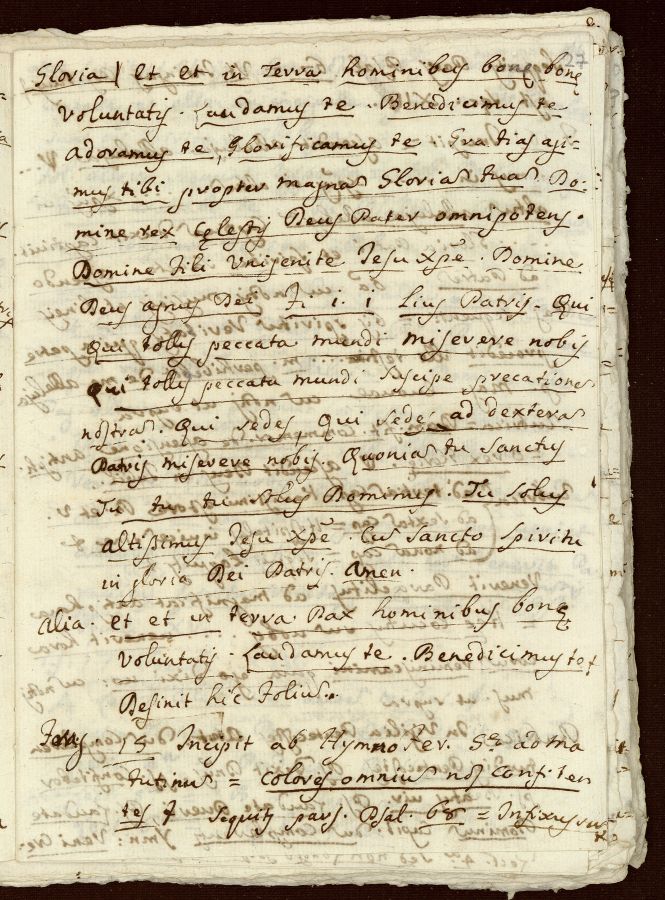 27
Gloria | et et in terra hominibus bonę bonę
voluntatis. Laudamus te. Benedicimus te
adoramus te, Glorificamus te Gratias agi-
mus tibi propter magnas Glorias tuas. Do-
mine rex cęlestis Deus Pater omnipotens.
Domine fili Unigenite Jesu xpē. Domine
Deus agnus Dei F. i. i lius Patris. Qui
Qui tollis peccata mundi miserere nobis
Qui tollis peccata mundi suscipe precationes
nostras. Qui sedes, Qui sedes ad dexteras
Patris miserere nobis. Quonias tu sanctus
Tu tu tu solus Dominus. Tu solus
altissimus Jesu xpē. Cus sancto spiritu
in gloria Dei Patris. Amen.
alia. et et in terra. Pax hominibus bonę
voluntatis. Laudamus te. Benedicimus te
Desinit hic folius.
15 Incipit ab Hymno fer. 5ª ad ma
tutinus = colores omnius nos confiten
tes 7 sequitj pars. Psal. 68 = Infixus sus